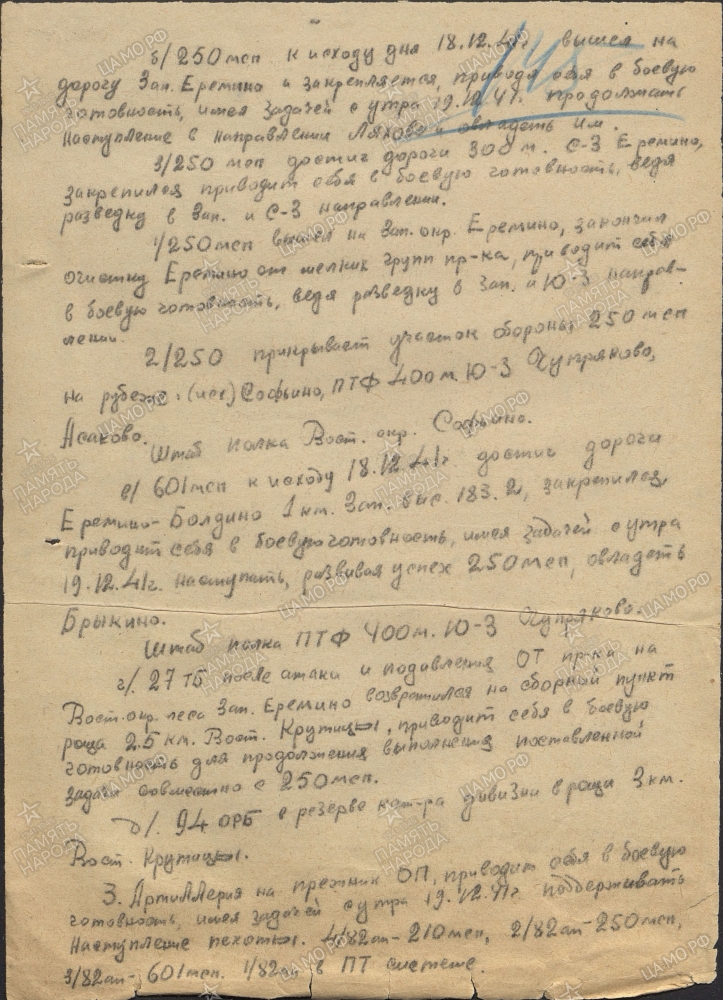 б/ 250 мсп к исходу дня 18.12.41г вышел на
дорогу Зап. Еремино и закрепляется, приводя себя в боевую
готовность, имея задачей с утра 19.12.41. продолжать
наступление в направлении Ляхово и овладеть им.
3/250 мсп достиг дороги 300 м. С-З Еремино,
закрепился приводит себя в боевую готовность, ведя
разведку в Зап. и С-З направлении.
1/250 мсп вышел на Зап. окр. Еремино, закончил
очистку Еремино от мелких групп пр-ка, приводит себя
в боевую готовность, ведя разведку в Зап. и Ю-З направ-
лении.
2/250 прикрывает участок обороны 250 мсп
на рубеже: (иск) Софьино, ПТФ 400 м. Ю-З Чупряково,
Асаково.
Штаб полка Вост. окр. Софьино.
в/ 601 мсп к исходу 18.12.41г достиг дороги
Еремино-Болдино 1 км. Зап. выс. 183.2, закрепился,
приводит себя в боевую готовность, имея задачей с утра
19.12.41г. наступать, развивая успех 250 мсп, овладеть
Брыкино.
Штаб полка ПТФ 400 м. Ю-З Чупряково.
г/. 27 ТБ после атаки и подавления ОТ пр-ка на
Вост. окр. леса Зап. Еремино возвратился на сборный пункт
роща 2.5 км. Вост. Крутицы, приводит себя в боевую
готовность для продолжения выполнения поставленной
задачи совместно с 250 мсп.
д/. 94 ОРБ в резерве ком-ра дивизии в роще 3 км.
Вост. Крутицы.
3. Артиллерия на прежних ОП, приводит себя в боевую
готовность, имея задачей с утра 19.12.41г поддерживать
наступление пехоты. 4/82ап - 210 мсп, 2/82ап - 250 мсп,
3/82ап - 601 мсп. 1/82ап в ПТ системе.